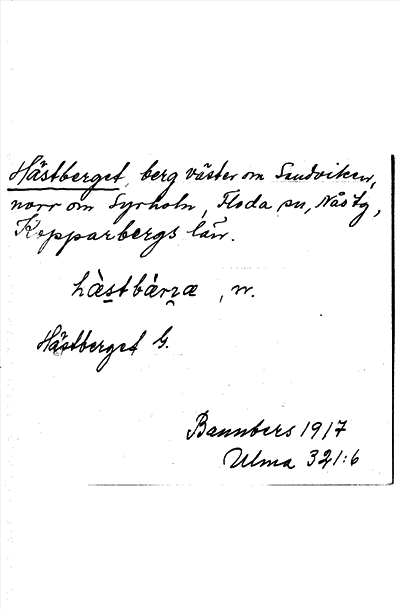 Hästberget, berg väster om Sandviken,
norr om Syrholn, Floda sn, Nås tg,
Kopparbergs län.
hàs̲tbàrɲæ, n.
Hästberget G.
Bannbers 1917
Ulma 321:6